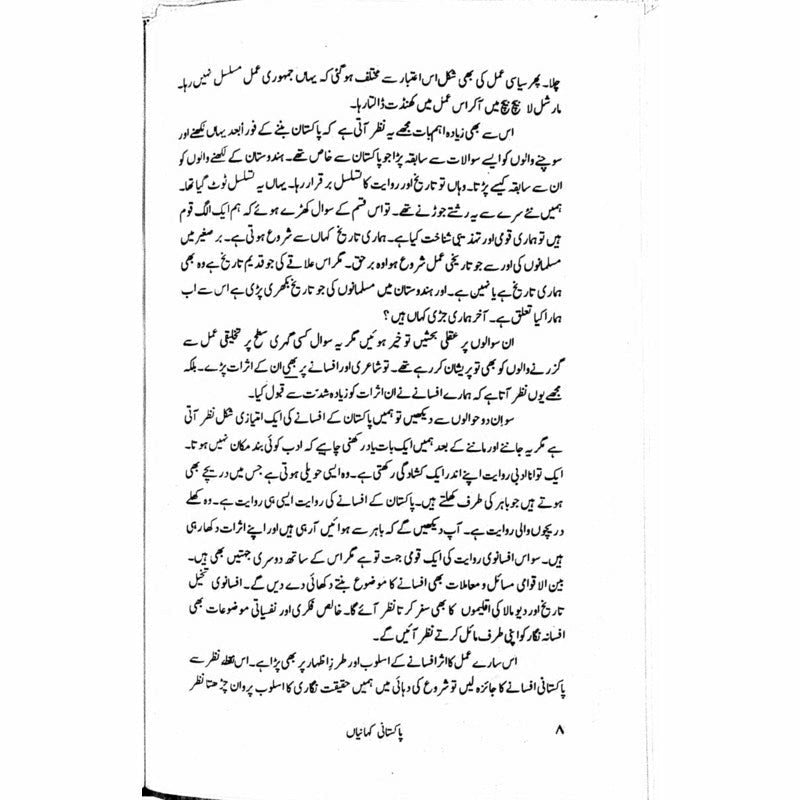 چلا۔ پھر سیاسی عمل کی بھی شکل اس اعتبار سے مختلف ہو گئی کہ یہاں جمہوری عمل مسلسل نہیں رہا۔
مارشل لا بیچ بیچ میں آ کر اس عمل میں کھنڈت ڈالتا رہا۔
اس سے بھی زیادہ اہم بات مجھے یہ نظر آتی ہے کہ پاکستان بننے کے فوراً بعد یہاں لکھنے اور
سوچنے والوں کو ایسے سوالات سے سابقہ پڑا جو پاکستان سے خاص تھے۔ ہندوستان کے لکھنے والوں کو
ان سے سابقہ کیسے پڑتا۔ وہاں تو تاریخ اور روایت کا تسلسل برقرار رہا۔ یہاں یہ تسلسل ٹوٹ گیا تھا۔
ہمیں نئے سرے سے یہ رشتے جوڑنے تھے۔ تو اس قسم کے سوال کھڑے ہوئے کہ ہم ایک الگ قوم
ہیں تو ہماری قومی اور تہذیبی شناخت کیا ہے۔ ہماری تاریخ کہاں سے شروع ہوتی ہے۔ بر صغیر میں
مسلمانوں کی اور سے جو تاریخی عمل شروع ہوا وہ بر حق۔ مگر اس علاقے کی جو قدیم تاریخ ہے وہ بھی
ہماری تاریخ ہے یا نہیں ہے۔ اور ہندوستان میں مسلمانوں کی جو تاریخ بکھری پڑی ہے اس سے اب
ہمارا کیا تعلق ہے۔ آخر ہماری جڑی کہاں ہیں؟
ان سوالوں پر عقلی بحثیں تو خیر ہوئیں مگر یہ سوال کسی گہری سطح پر تخلیقی عمل سے
گزرنے والوں کو بھی تو پریشان کر رہے تھے۔ تو شاعری اور افسانے پر بھی ان کے اثرات پڑے۔ بلکہ
مجھے یوں نظر آتا ہے کہ ہمارے افسانے نے ان اثرات کو زیادہ شدّت سے قبول کیا۔
سو اِن دو حوالوں سے دیکھیں تو ہمیں پاکستان کے افسانے کی ایک امتیازی شکل نظر آتی
ہے مگر یہ جاننے اور ماننے کے بعد ہمیں ایک بات یاد رکھنی چاہیے کہ ادب کوئی بند مکان نہیں ہوتا۔
ایک توانا ادبی روایت اپنے اندر ایک کشادگی رکھتی ہے۔ وہ ایسی حویلی ہوتی ہے جس میں دریچے بھی
ہوتے ہیں جو باہر کی طرف کھلتے ہیں۔ پاکستان کے افسانے کی روایت ایسی ہی روایت ہے۔ وہ کھلے
دریچوں والی روایت ہے۔ آپ دیکھیں گے کہ باہر سے ہوائیں آ رہی ہیں اور اپنے اثرات دکھا رہی
ہیں۔ سو اس افسانوی روایت کی ایک قومی جہت تو ہے مگر اس کے ساتھ دوسری جہتیں بھی ہیں۔
بین الاقوامی مسائل و معاملات بھی افسانے کا موضوع بنتے دکھائی دے دیں گے۔ افسانوی تخیّل
تاریخ اور دیومالا کی اقلیموں کا بھی سفر کرتا نظر آئے گا۔ خالص فکری اور نفسیاتی موضوعات بھی
افسانہ نگار کو اپنی طرف مائل کرتے نظر آئیں گے۔
اس سارے عمل کا اثر افسانے کے اسلوب اور طرزِ اظہار پر بھی پڑا ہے۔ اس نقطۂ نظر سے
پاکستانی افسانے کا جائزہ لیں تو شروع کی دہائی میں ہمیں حقیقت نگاری کا اسلوب پروان چڑھتا نظر
۸ پاکستانی کہانیاں